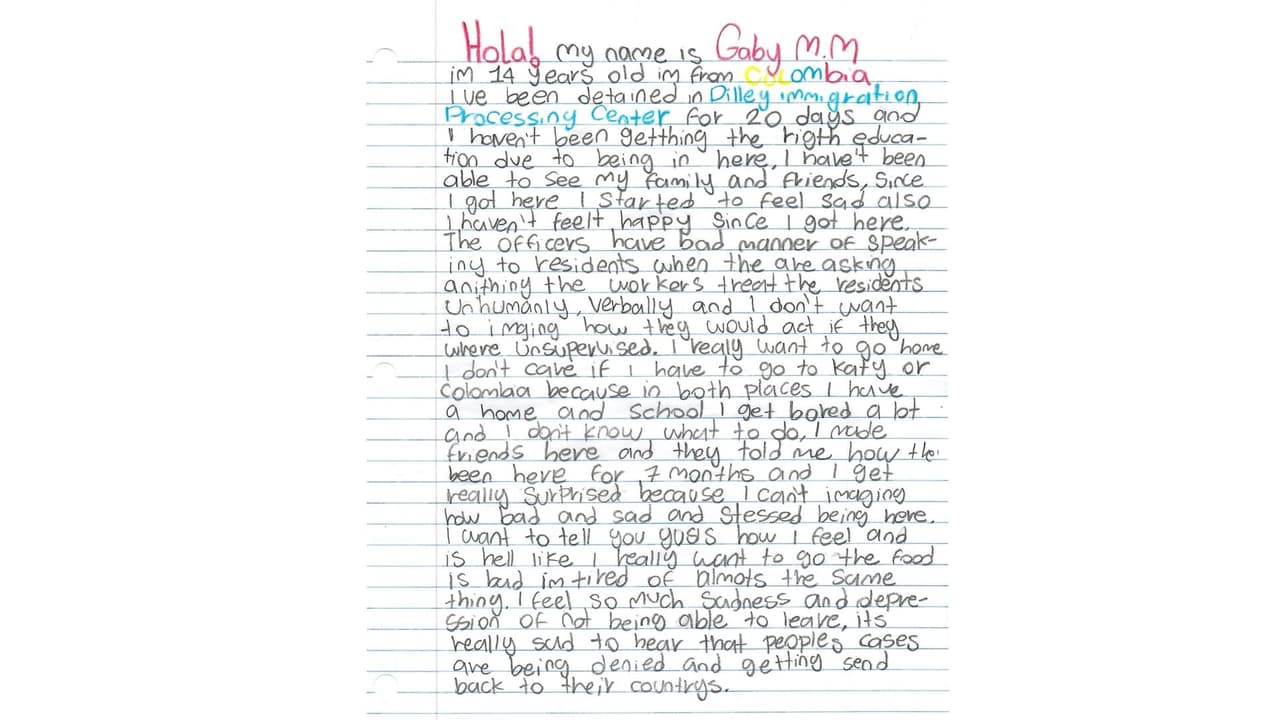 Hola! my name is Gaby M.M
im 14 years old im from COLombia
i've been detained in Dilley immigration
Processing Center for 20 days and
I haven't been getthing the rigth educa-
tion due to being in here, I have't been
able to see my family and friends, since
I got here I started to feel sad also
I haven't feelt happy since I got here.
The officers have bad manner of speak-
iny to residents when the are asking
anithing the workers treat the residents
unhumanly, verbally and I don't want
to imging how they would act if they
where unsupervised. I realy want to go home
I don't care if i have to go to Katy or
Colombia because in both places I have
a home and school I get bored a lot
and I don't know what to do, I made
friends here and they told me how the
been here for 7 months and I get
really surprised because I can't imaging
how bad and sad and stessed being here.
I want to tell you guys how I feel and
is hell like I really want to go the food
is bad im tired of almots the same
thing. I feel so much sadness and depre-
ssion of not being able to leave, its
really sad to hear that peoples cases
are being denied and getting send
back to their countrys.